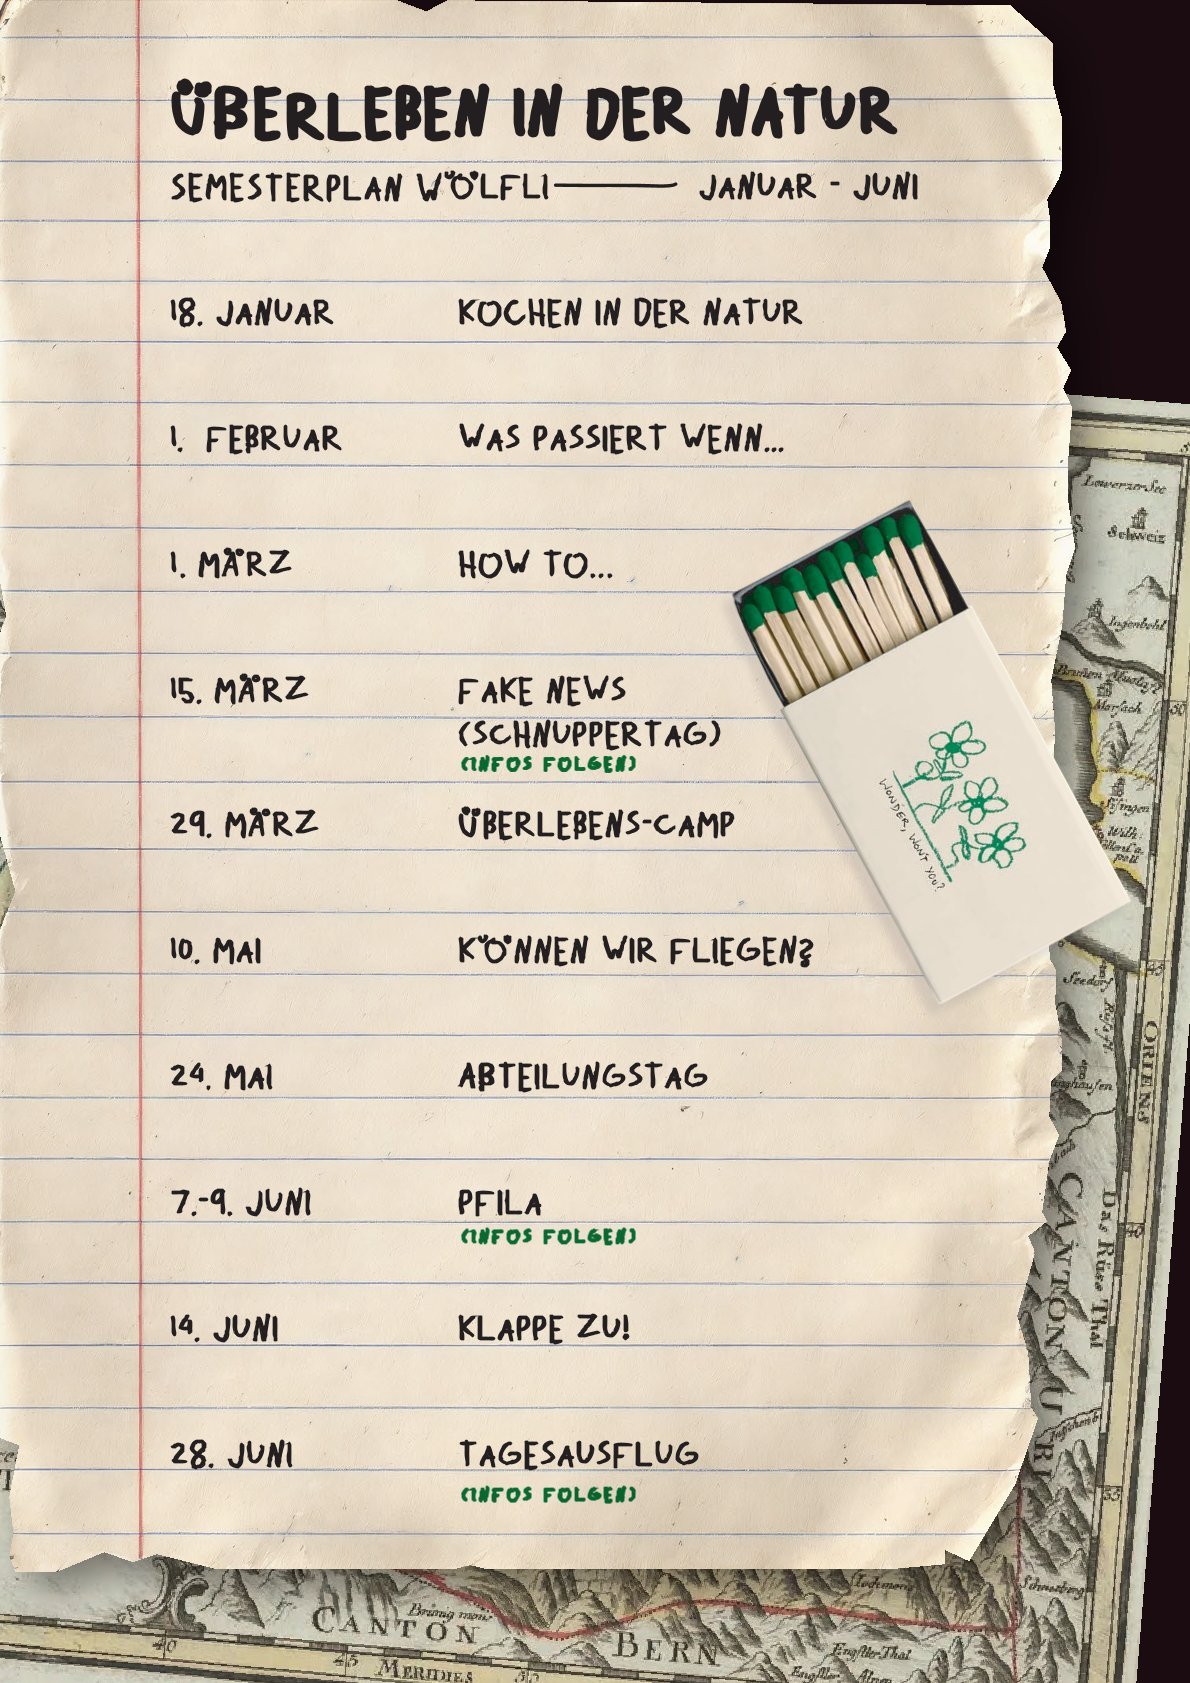 ÜBERLEBEN IN DER NATUR
SEMESTERPLAN WÖLFLI——— JANUAR - JUNI
18. JANUAR KOCHEN IN DER NATUR
1. FEBRUAR WAS PASSIERT WENN...
1. MÄRZ HOW TO...
15. MÄRZ FAKE NEWS
(SCHNUPPERTAG)
(INFOS FOLGEN)
29. MÄRZ ÜBERLEBENS-CAMP
10. MAI KÖNNEN WIR FLIEGEN?
24. MAI ABTEILUNGSTAG
7.-9. JUNI PFILA
(INFOS FOLGEN)
14. JUNI KLAPPE ZU!
28. JUNI TAGESAUSFLUG
(INFOS FOLGEN)
WONDER, WON'T YOU?
Lowerzer See
Schweiz
Ingenbohl
Morsach
Sisingen
Seedorf
ORIENS
CANTON URI
Das Rüss Thal
CANTON BERN
Brünig mons
Engstler Thal
Engstler Alpen
40
45 MERIDIES
45
40
35